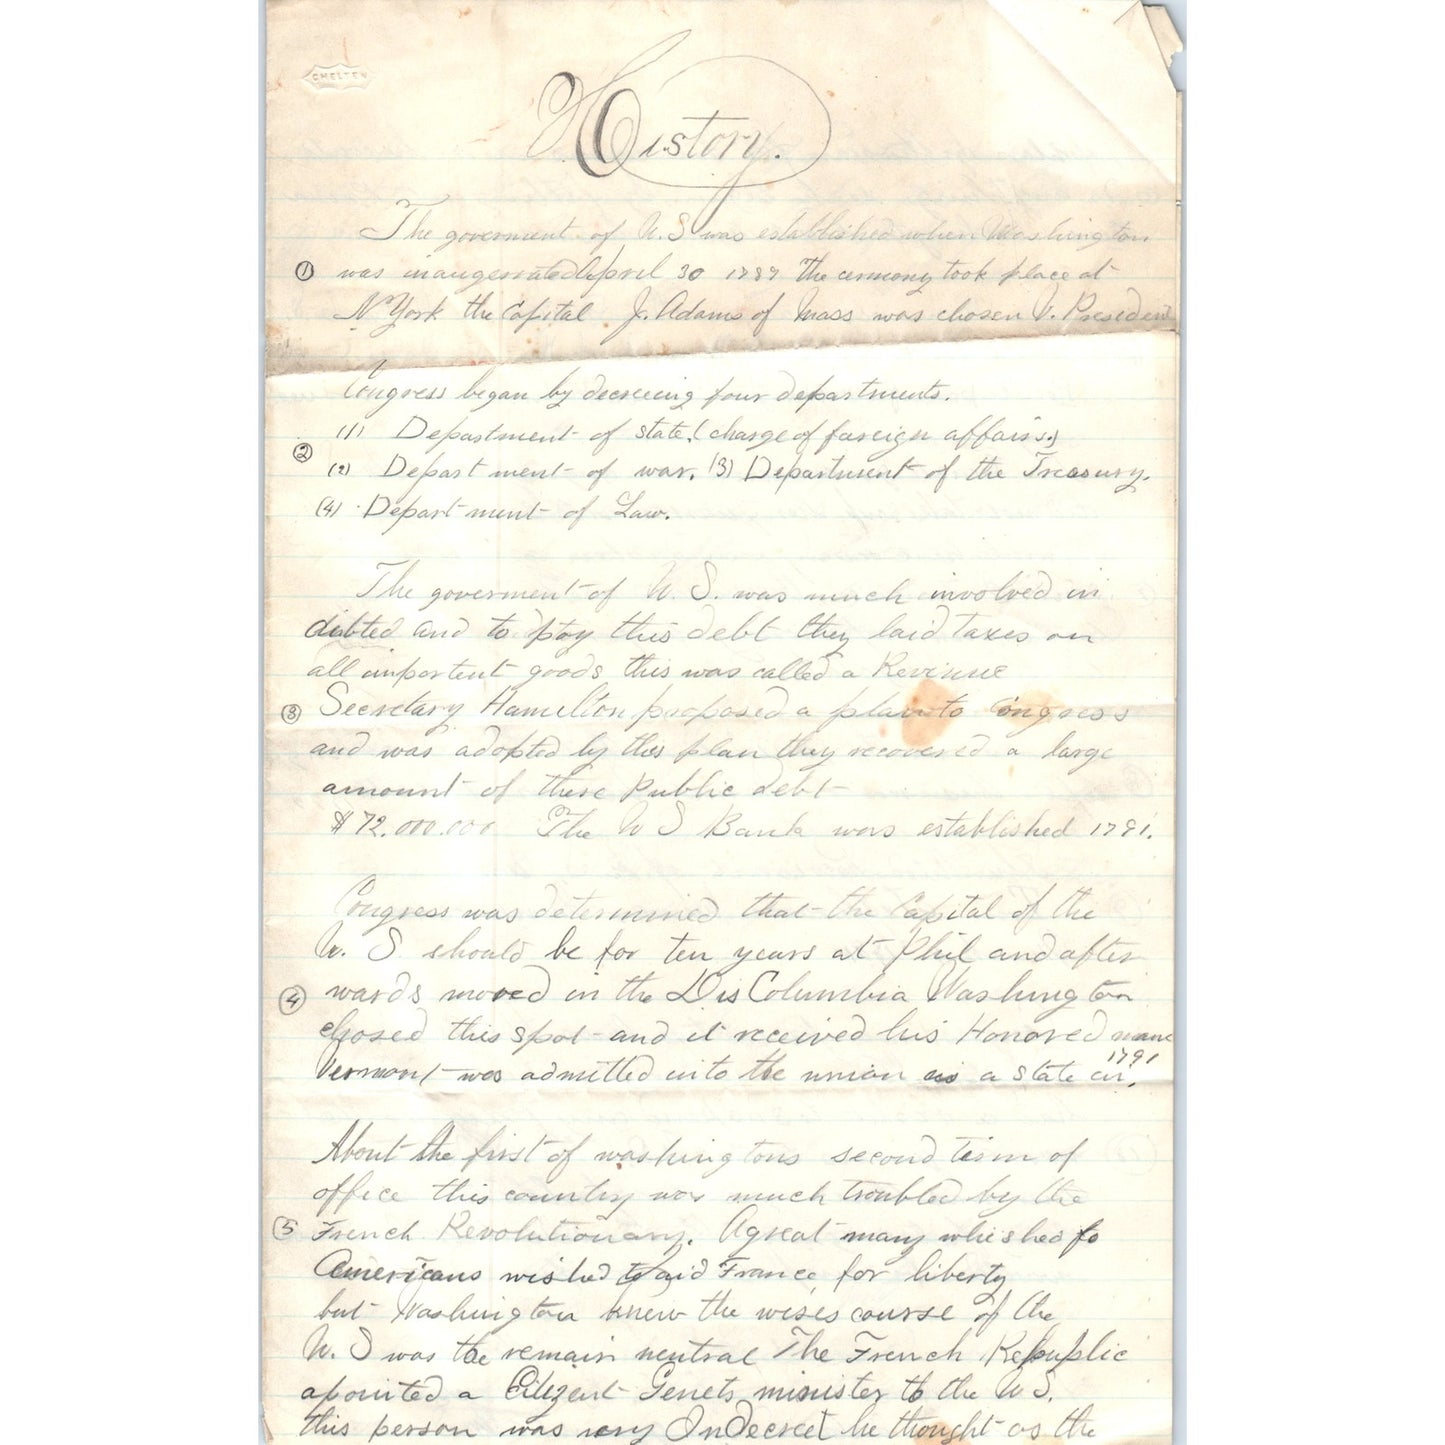 CHELTEN
History.
The goverment of U.S was established when Washington
① was inaugerated April 30 1789 The cermony took place at
N York the Capital J. Adams of Mass was chosen V. President
Congress began by decreeing four departments.
(1) Department of state, (charge of foreign affairs.)
②
(2) Department of war. (3) Department of the Treasury.
(4) Department of Law.
The goverment of U. S. was much involved in
debted and to pay this debt they laid taxes on
all important goods this was called a Revenue
③ Secretary Hamelton proposed a plan to Congress
and was adopted by this plan they recovered a large
amount of these Public debt
$72.000.000 The U S Bank was established 1791.
Congress was determined that the Capital of the
U. S should be for ten years at Phil and after
④ wards moved in the Dis Columbia Washington
chosed this spot and it received his Honored name
Vermont was admitted into the union as a state in 1791.
About the first of washingtons second term of
office this country was much troubled by the
⑤ French Revolutionary. A great many whished fo
Americans wished to aid France, for liberty
but Washington knew the wises course of the
U. S was the remain neutral The French Repuplic
apointed a Citizent Genets minister to the U S.
this person was very Indecreet he thought as the